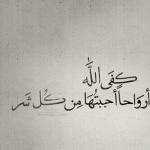 كفى اللّٰه
أرواحاً أحببتها من كل شر